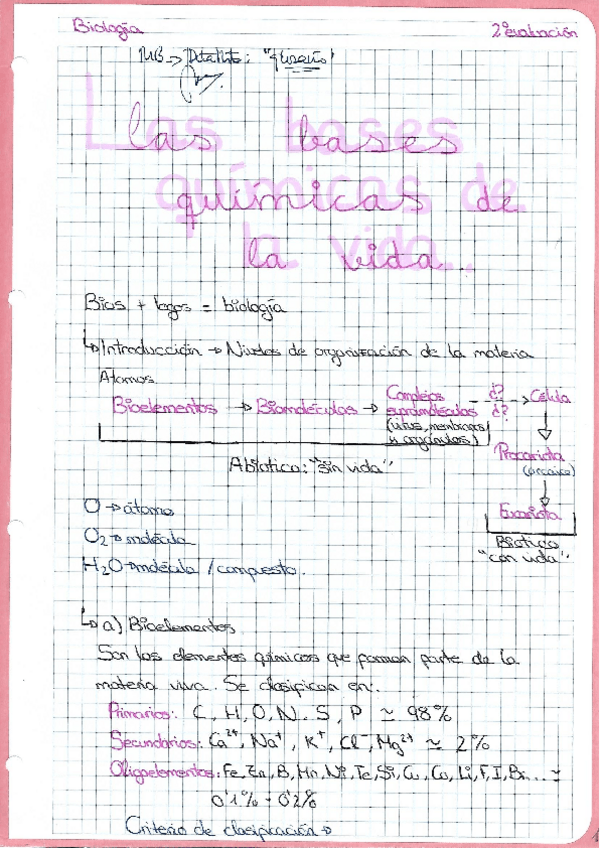 Biología
2ªevaluación
MB →
Las bases
químicas de
la vida...
Bios + logos = biología
↳ Introducción → Niveles de organización de la materia
Átomos
Bioelementos → Biomoléculas → Complejos supramoléculas (virus, membranas y orgánulos) - ¿? ¿? -> Célula
Abiótica: "sin vida"
Procariota
(arcaica)
Eucariota
Biótica
"con vida"
O → átomo
O₂ → molécula
H₂O → molécula / compuesto.
↳ a) Bioelementos
Son los elementos químicos que forman parte de la
materia viva. Se clasifican en:.
Primarios: C, H, O, N, S, P ≃ 98%
Secundarios: Ca²⁺, Na⁺, K⁺, Cl⁻, Mg²⁺ ≃ 2%
Oligoelementos: Fe, Zn, B, Mn, Ni, Si, Cu, Co, Li, F, I, Br... ≃
0'1% - 0'2%
Criterio de clasificación →